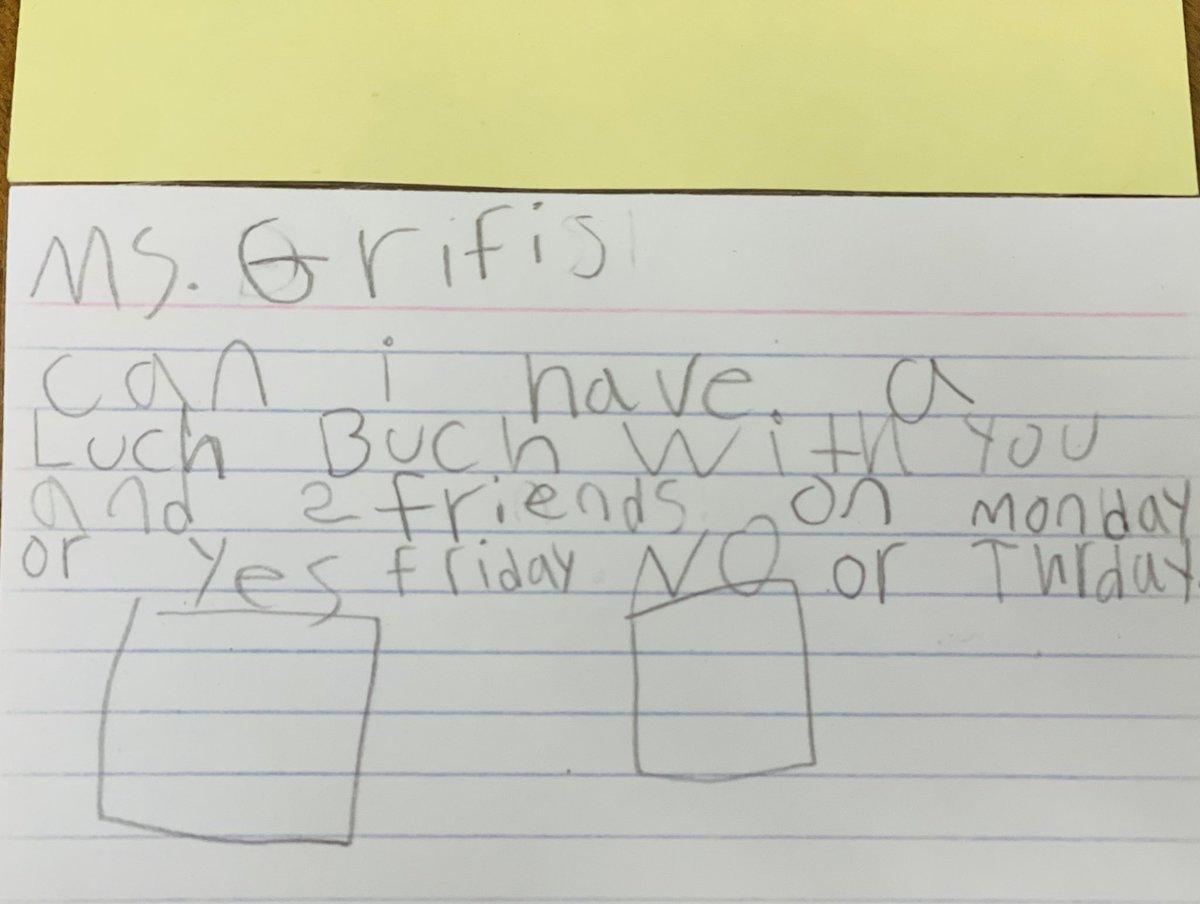 Ms. Grifis
can i have. a
Luch Buch with you
and 2 friends on monday
or Yes friday NO or Thrday